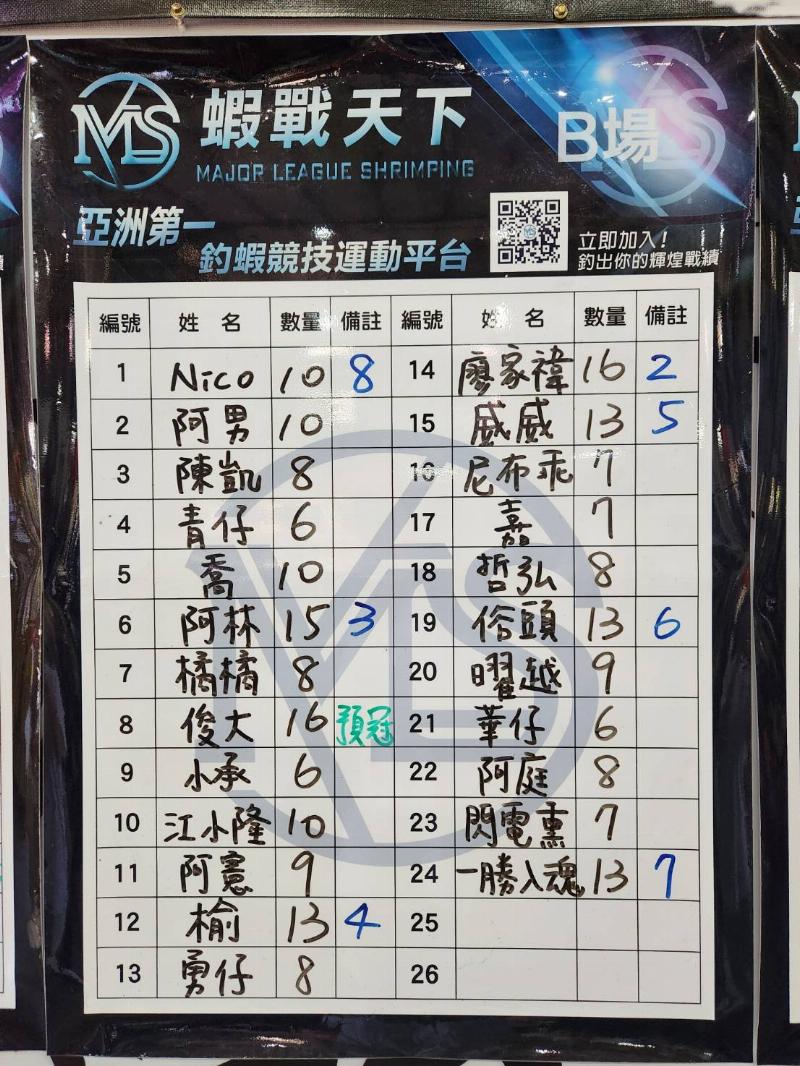 MLS 蝦戰天下
MAJOR LEAGUE SHRIMPING
B場
亞洲第一
釣蝦競技運動平台
立即加入!
釣出你的輝煌戰績
編號 姓名 數量 備註 編號 姓名 數量 備註
1 Nico 10 8 14 廖家禕 16 2
2 阿男 10 15 威威 13 5
3 陳凱 8 16 尼布乖 7
4 青仔 6 17 嘉 7
5 喬 10 18 哲弘 8
6 阿林 15 3 19 俗頭 13 6
7 橘橘 8 20 曜越 9
8 俊大 16 預冠 21 華仔 6
9 小承 6 22 阿庭 8
10 江小隆 10 23 閃電熏 7
11 阿憲 9 24 一勝入魂 13 7
12 榆 13 4 25
13 勇仔 8 26